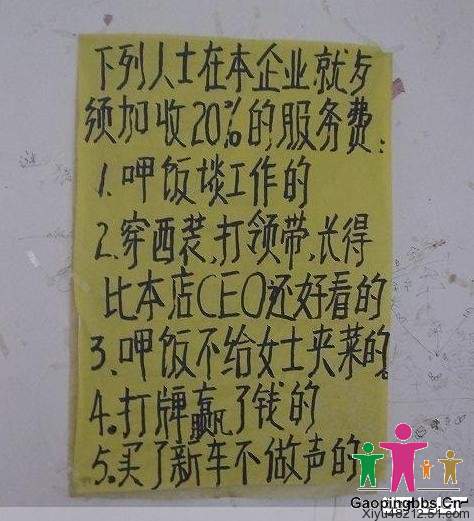 下列人士在本企业就歺
须加收20%的服务费:
1.呷饭埮工作的
2.穿西装,打领带,长得
比本店CEO还好看的
3.呷饭不给女士夹菜的。
4.打牌赢了钱的
5.买了新车不做声的
Gaopingbbs.Cn